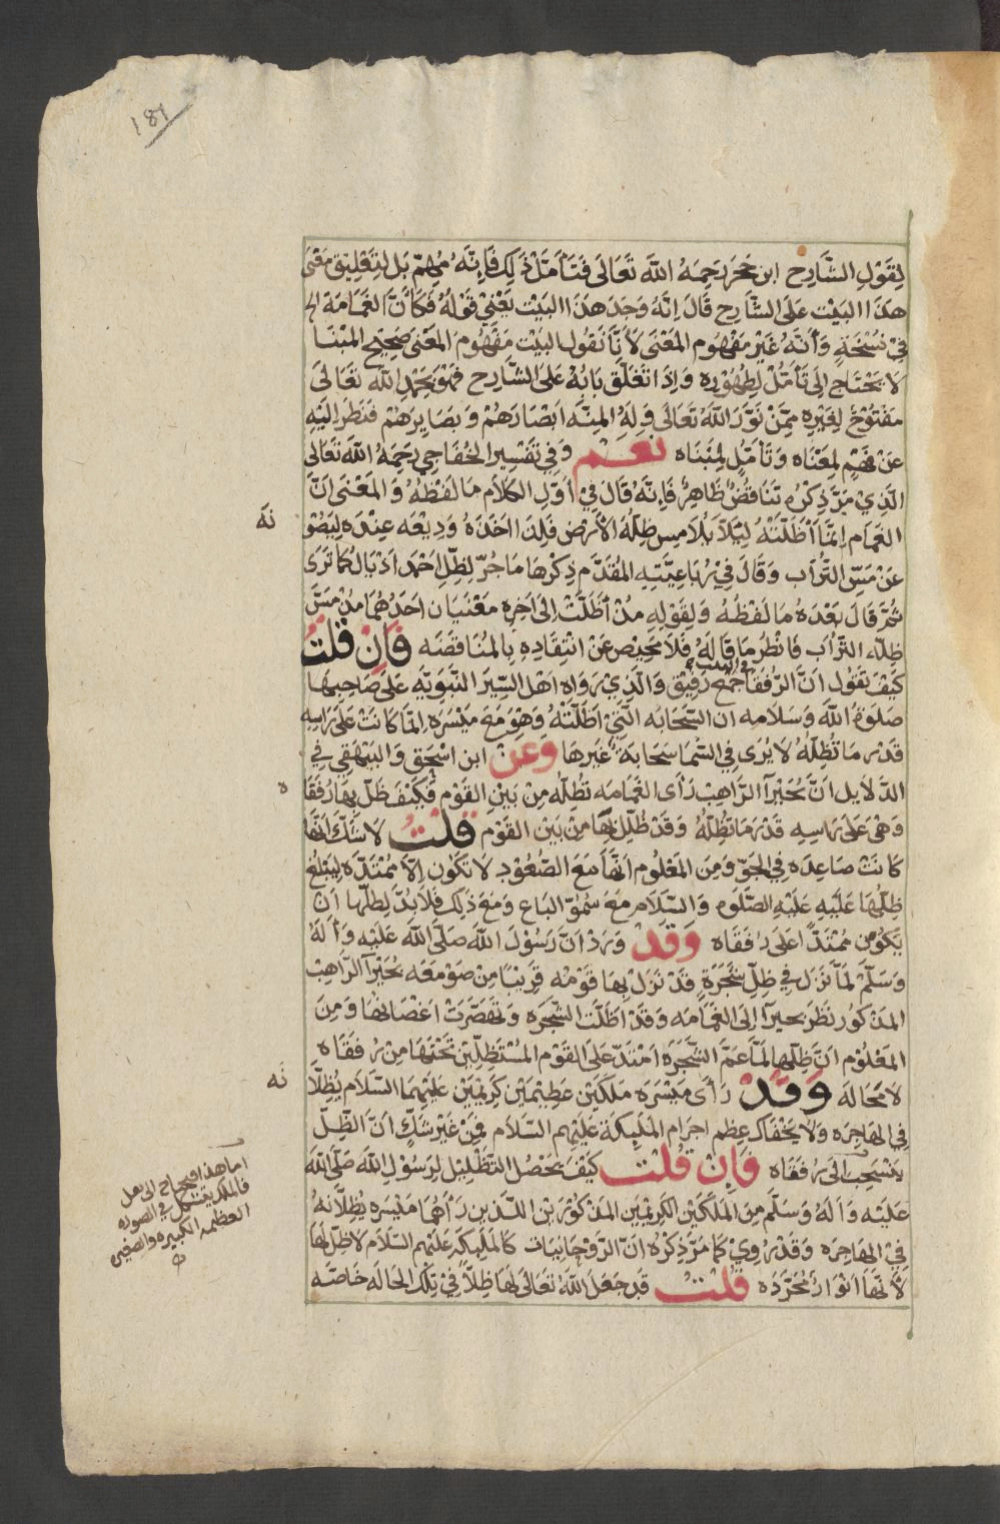 187
لِقَوْلِ الشَّارِح ابن حَجَر رَحِمَهُ اللهَ تَعَالَى فَتَأمَّلْ ذَلِكَ فَإِنَّهُ مُهِمّ بَل لِتَعْلِيق مَعْنَى
هَذَا البَيْت عَلَى الشَّارِح قَالَ إنَّهُ وَجَدَ هَذَا البَيْت يَعْنِيْ قَوْلَهُ فَكَأنَّ الغَمَامَة الح
فِيْ نُسْخَةٍ وَأنَّهُ غَيْر مَفْهُوم المَعْنَى لَأنَّا نَقُول البَيْت مَفْهُومُ المَعْنَى صَحِيح المَبْنَا
لَا يَحْتَاج إلَى تَأمُّلْ لِظُهُوْرِه وَإذَا تَغَلَّقَ بَابُهُ عَلَى الشَّارِح فَهُوَ بِحَمْدِ الله تَعَالَى
مَفْتُوْحٌ لِغَيْرِه مِمَّنْ نَوَّرَ اللهُ تَعَالَى وَلِهِ المِنَّه ابْصَارَهُمْ وَبَصَايِرَهُمْ فَنَظَرَ إلَيْهِ
عَنْ فَهْمٍ لِمَعْنَاه وَتَأمُّلٍ لِمَبْنَاه نَعَم وَفِي تَفْسِير الخَفَاجِي رَحِمَهُ اللهَ تَعَالَى
الَّذِيْ مَرَّ ذِكْرُهُ تَنَاقُضٌ ظَاهِرٌ فَإنَّهُ قَالَ فِيْ أوَّلِ الكَلَام مَا لَفْظُهُ وَالمَعْنَى انَّ
الغَمَام إنَّمَا أظَلَّتْهُ لِيَلَّا يُلَامِس ظِلُّهُ الأرْض فَلِذَا اخَذَهُ وَدِيْعَه عِنْدَه لِيَصُوْ نَه
عَنْ مَسِّ التُّرَاب وَقَالَ فِيْ رُبَاعِيَّتِهِ المُقَدَّم ذِكْرهَا مَا جُرّ لِظِلِّ احْمَد اذْيَال كَمَا تَرَى
ثُمَّ قَالَ بَعْدَهُ مَا لَفْظُهُ وَلِقَوْلِهِ مُذْ أظَلَّتْ إلَى اَخِرِهِ مَعْنَيَان احَدُهُمَا مُذْ مَسَّ
ظِلَّاءَ التُّرَاب فَانْظُر مَا قَالَهُ فَلَا مَحِيْص عَنْ انْتِقَادِه بِالمُنَاقَضَه فَإنْ قُلْتَ
كَيْفَ تَقُوْل انَّ الرُّفَقَا جَمْع رَفِيْق وَالَّذِيْ رَوَاه اهْل السِّيَر النَّبَوِيَّهِ عَلَى صَاحِبِهَا
صَلَوةُ الله وَسَلَامه ان السَّحَابَه الَّتِيْ اظَلَّتْهُ وَهْوَ مَعَ مَيْسَرَه إنَّمَا كَانَتْ عَلَى رَاسِهِ
قَدْر مَا تُظِلُّهُ لَا يُرَى فِي السَّمَا سَحَابَة غَيْرهَا وَعَنْ ابن اسْحَق وَالبَيْهَقِي فِي
الدَّلَايل انَّ بُحَيْرَا الرَّاهِبْ رَأى الغَمَامَه تُظِلُّه مِنْ بَيْنِ القَوْم فَكَيْفَ ظَلَّ بِهَا رُفَقَا ه
وَهْىَ عَلَى رَاسِهِ قَدْر مَا تُظِلُّهُ وَقَدْ ظُلِّلَ بِهَا مِنْ بَيْن القَوْم قُلْتُ لَا شَكّ انَّهَا
كَانَتْ صَاعِدَه فِي الجَوّ وَمِنَ المَعْلُوم انَّهَا مَعَ الصُّعُوْد لَا تَكُوْن إلَّا مُمْتَدَّه لِيَبْلُغ
ظِلُّهَا عَلَيْهِ عَلَيْهِ الصَّلَوه وَالسَّلَام مَعَ سُمُوّ البَاع وَمَعَ ذَلِكَ فَلَا بُدَّ لِظِلِّهَا أنْ
يَكُوْن مُمْتَدًّا عَلَى رُفَقَاه وَقَدْ وَرَدْ انَّ رَسُوْلَ الله صَلَّى اللهَ عَلَيْه وَألَهُ
وَسَلَّمْ لَمَّا نَزَل فِي ظِلِّ شَجَرَةٍ قَدْ نَزَلْ بِهَا قَوْمُه قَرِيْبًا مِنْ صَوْمَعَه بُحَيْرَا الرَّاهِبْ
المَذْكُوْر نَظَرَ بحيرَا إلَى الغَمَامَه وَقَدْ اظَلَّت الشَّجَره وَتَهَصَّرَتْ اغْصَانُهَا وَمِنَ
المَعْلُوْم انَّ ظِلَّهَا لَمَّا عَمَّ الشَّجَرَه امْتَدَّ عَلَى القَوْم المُسْتَظِلِّيْن تَحْتهَا مِنْ رُفَقَاه
لَا مَحَالَه وَقَدْ رَأى مَيْسَرَه مَلَكَيْن عَظِيْمَيْن كَرِيْمَيْن عَلَيْهِمَا السَّلَام يُظِلَّا نَه
فِي الهَاجِرَه وَلَا يَخْفَاك عِظَم اجْرَام المَلَيِكَة عَلَيْهِم السَّلَام فَمِنْ غَيْر شَكٍّ انَّ الظِّلّ
يَنْسَحِب عَلَى رُفَقَاه فَإنْ قُلْتَ كَيْفَ يَحْصُل التَّظْلِيْل لِرَسُوْلِ الله صَلَّى الله
عَلَيْه وَألَهُ وَسَلَّم مِنَ المَلَكَيْنِ الكَرِيْمَيْنِ المَذْكُوْرَيْنِ اللَّذَيْن رَأهُمَا مَيْسَرَه يُظِلَّانهُ
فِيْ الهَاجِرَه وَقَدْ رُوِيْ كَمَا مَرَّ ذِكْرُهُ انَّ الرَّوْحَانِيَات كَالمَلَيكَة عَلَيْهِم السَّلَام لَا ظِلَّ لَهَا
لأنَّهَا انْوَارٌ مُجَرَّدَه قُلْتُ قَد جَعَلَ اللهُ تَعَالَى لَهَا ظِلًّا فِيْ تِلْكَ الحَالَه خَاصَّه
اما هذا فيحتاج الى نقل
فالملك يتشكل في الصوره
العظيمه الكبيره والصغيره